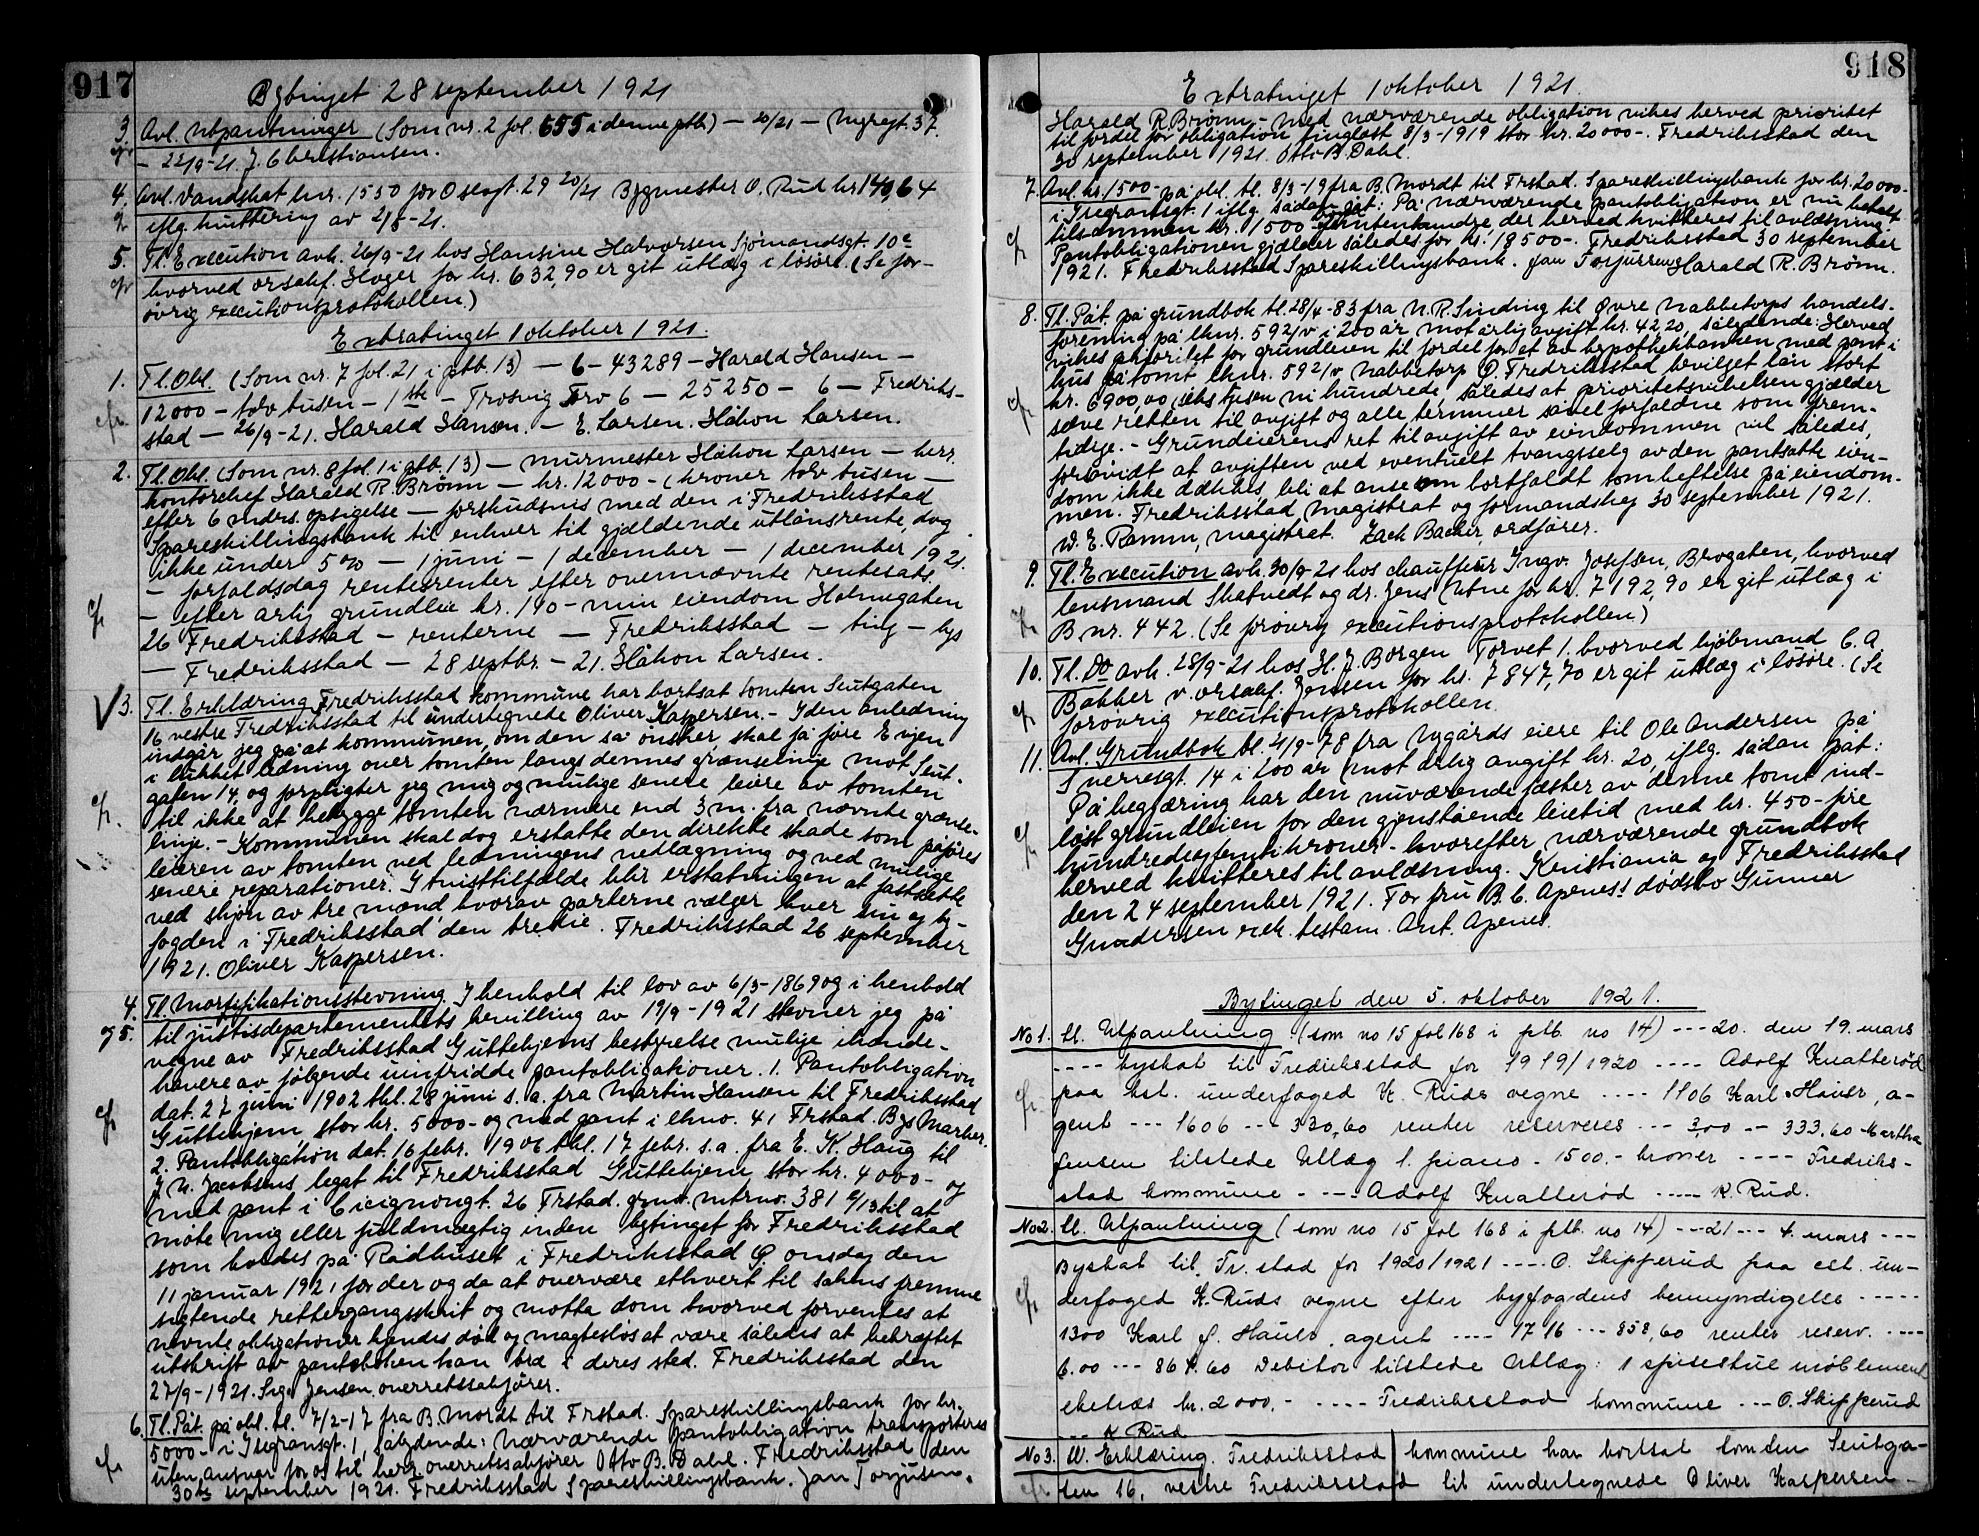 917
Bytinget 28 september 1921
3. Avl. utpantninger (Som nr. 2 fol. 655 i denne ptb) — 20/21 — Nygt. 37.
— 22/9-21. J. Christiansen.
4. Avl. Vandskat hnr. 1550 for Osesgt. 29 20/21 Bygmester O. Rud kr 140,64
iflg. kvittering av 2/8-21.
5. Tl. Execution avh. 26/9-21 hos Hansine Halvorsen Sjømandsgt. 10c
hvorved orsakf. Høger for kr. 632,90 er git utlæg i løsøre. (Se for-
øvrig executionsprotokollen.)
Extratinget 1 oktober 1921.
1. Tl. Obl. (Som nr. 7 fol. 21 i ptb. 13) — 6 — 43289 — Harald Hansen —
12000 — tolv tusen — 1ste — Trosvig Trv 6 — 25250 — 6 — Fredriks-
stad — 26/9-21. Harald Hansen. — E. Larsen. Håkon Larsen.
2. Tl. Obl. (Som nr. 8 fol. 1 i ptb. 13) — Murmester Håkon Larsen — herr
kontorchef Harald R. Brønn — kr. 12000 — (kroner tolv tusen —
efter 6 mdrs. opsigelse — forskudsvis med den i Fredriksstad
Spareskillingsbank til enhver tid gjældende utlånsrente, dog
ikke under 5 % — 1 juni — 1 december — 1 december 1921.
— forfaldsdag rentesrenter efter ovennævnte rentesats
— efter årlig grundleie kr. 140 — min eiendom Holmegaten
26 Fredriksstad — renterne — Fredriksstad — ting — bys
— Fredriksstad — 28 septbr — 21. Håkon Larsen.
3. Tl. Erklæring. Fredriksstad kommune har bortsat tomten Seutgaten
16 vestre Fredriksstad til undertegnede Oliver Kaspersen. — I den anledning
indgår jeg på at kommunen, om den så ønsker, skal få føre Evjen
i lukket ledning over tomten langs dennes grænselinje mot Seut-
gaten 14, og forpligter jeg mig og mulige senere leiere av tomten
til ikke at bebygge tomten nærmere end 3 m. fra nævnte grænse-
linje. — Kommunen skal dog erstatte den direkte skade som påføres
leieren av tomten ved ledningens nedlægning og ved mulige
senere reparationer. I tvisttilfælde blir erstatningen at fastsætte
ved skjøn av tre mænd, hvorav parterne vælger hver sin og by-
fogden i Fredriksstad den tredie. Fredriksstad 26 september
1921. Oliver Kaspersen.
4. Tl. Mortifikationsstevning. I henhold til lov av 6/3-1869 og i henhold
5. til justisdepartementets bevilling av 19/9-1921 stevner jeg på
vegne av Fredriksstad Guttehjems bestyrelse mulige ihænde-
havere av følgende uindfridde pantobligationer. 1. Pantobligation
dat. 27 juni 1902 thl. 28 juni s.a. fra Martin Hansen til Fredriksstad
Guttehjem, stor kr. 5000 — og med pant i lhno. 41 Frstad. Bys Marker.
2. Pantobligation dat. 16 febr. 1906 thl. 17 febr. s.a. fra E. K. Haug til
J. N. Jacobsens legat til Fredriksstad Guttehjem stor kr. 4000 — og
med pant i Cicignongt. 26 Frstad. grno. mtrno. 381 c/13 til at
møte mig eller fuldmægtig inden bytinget for Fredriksstad
som holdes på Rådhuset i Fredriksstad onsdag den
11 januar 1921 for der og da at overvære ethvert til sakens fremme
sigtende rettergangsskrit og motta dom hvorved forventes at
nevnte obligationer kjendes død og magtesløs at være således at bekræftet
utskrift av pantebøken kan træ i deres sted. Fredriksstad den
27/9-1921. Sig. Jensen, overretssakfører.
6. Tl. Påt. på obl. tl. 7/2-17 fra B. Mordt til Frstad. Spareskillingsbank for kr.
5000 — i Isegransgt. 1, sålydende: Nærværende pantobligation transporteres
uten ansvar for os til herr overretssakfører Otto B. Dahl. Fredriksstad den
30te september 1921. Fredriksstad Spareskillingsbank. Jan Torjusen.
918
Extratinget 1 oktober 1921.
Harald R. Brønn. — Med nærværende obligation vikes herved prioritet
til fordel for obligation tinglæst 8/3-1919 stor kr. 20000 —. Fredriksstad den
30 september 1921. Otto B. Dahl.
7. Avl. kr. 1500 — på obl. tl. 8/3-19 fra B. Mordt til Frstad. Spareskillingsbank for kr. 20000 —
i Isegransgt. 1 iflg. sådan påt: På nærværende pantobligation er nu betalt
tilsammen kr. 1500 femtenhundre, der herved kvitteres til avlæsning.
Pantobligationen gjælder således for kr. 18500 —. Fredriksstad 30 september
1921. Fredriksstad Spareskillingsbank. Jan Torjussen Harald R. Brønn.
8. Tl. Påt. på grundbok tl. 28/4-83 fra N. R. Sinding til Øvre Nabbetorps handels-
forening på lhnr. 592/v i 200 år mot årlig avgift kr. 42,20, sålydende: Herved
vikes prioritet for grundleien til fordel for et av hypothekbanken med pant i
hus på tomt lhnr. 592/v Nabbetorp Fredriksstad bevilget lån stort
kr. 6900,00 seks tusen ni hundrede, således at prioritetsvikelsen gjælder
sæve retten til avgift og alle terminer såvel forfaldne som frem-
tidige. — Grundeierens ret til avgift av eiendommen vil således,
forsåvidt at avgiften ved eventuelt tvangssalg av den pantsatte eien-
dom ikke dækkes, bli at anse som bortfaldt som heftelse på eiendom-
men. Fredriksstad Magistrat og formandskap 30 september 1921.
W. E. Ramm, magistrat. Zach Backer, ordfører.
9. Tl. Execution avh. 30/9-21 hos chauffeur Ingv. Josefsen, Brogaten, hvorved
lensmand Skatvedt og dr. Jens Utne for kr. 7192,90 er git utlæg i
B nr. 442. (Se forøvrig executionsprotokollen)
10. Tl. Do avh. 28/9-21 hos H. J. Borgen Torvet 1. hvorved kjøbmand C. A.
Bakker v. orsakf. Jensen for kr. 7847,70 er git utlæg i løsøre. (Se
forøvrig executionsprotokollen.
11. Avl. Grundbok tl. 21/9-78 fra Nygårds eiere til Ole Andersen på
Sverresgt. 14 i 100 år mot årlig avgift kr. 20, iflg. sådan påt.:
På begjæring har den nuværende fæster av denne tomt ind-
løst grundleien for den gjenstående leietid med kr. 450 — fire
hundredeogfemtikroner — hvorefter nærværende grundbok
herved kvitteres til avlæsning. Kristiania og Fredriksstad
den 24 september 1921. For fru B. C. Apeness dødsbo Gunnar
Gundersen exek. testam. Ant. Apenes.
Bytinget den 5. oktober 1921.
No 1. Tl. Utpantning (som no 15 fol 168 i ptb. no 14) --- 20. den 19. mars
---- byskat til Fredriksstad for 1919/1920 ---- Adolf Knatterød
paa cst. underfoged K. Ruds vegne ---- 1106 Karl Hauer, a-
gent --- 1606 --- 330,60 renter reserveres --- 3,00 -- 333,60 Martha
Jensen tilstede Utlæg 1. piano - 1500.- kroner ---- Fredriks-
stad kommune ---- Adolf Knatterød ---- K. Rud.
No 2. Tl. Utpantning (som no 15 fol 168 i ptb. no 14) --- 21 --- 4. mars ---
Byskat til Fr.stad for 1920/1921 ---- O. Skipperud paa cst. un-
derfoged K. Ruds vegne efter byfogdens bemyndigelse -----
1300 Karl f. Hauer, agent ---- 1716 --- 858,60 renter reserv. ----
6.00 --- 864.60 Debitor tilstede Utlæg: 1 spisestue møblement
eketræs kr. 2000.- ---- Fredriksstad kommune --- O. Skipperud
--- K Rud
No 3. Tl. Erklæring. Fredriksstad kommune har bortsat tomten Seutga-
ten 16, vestre Fredriksstad til undertegnede Oliver Kaspersen -